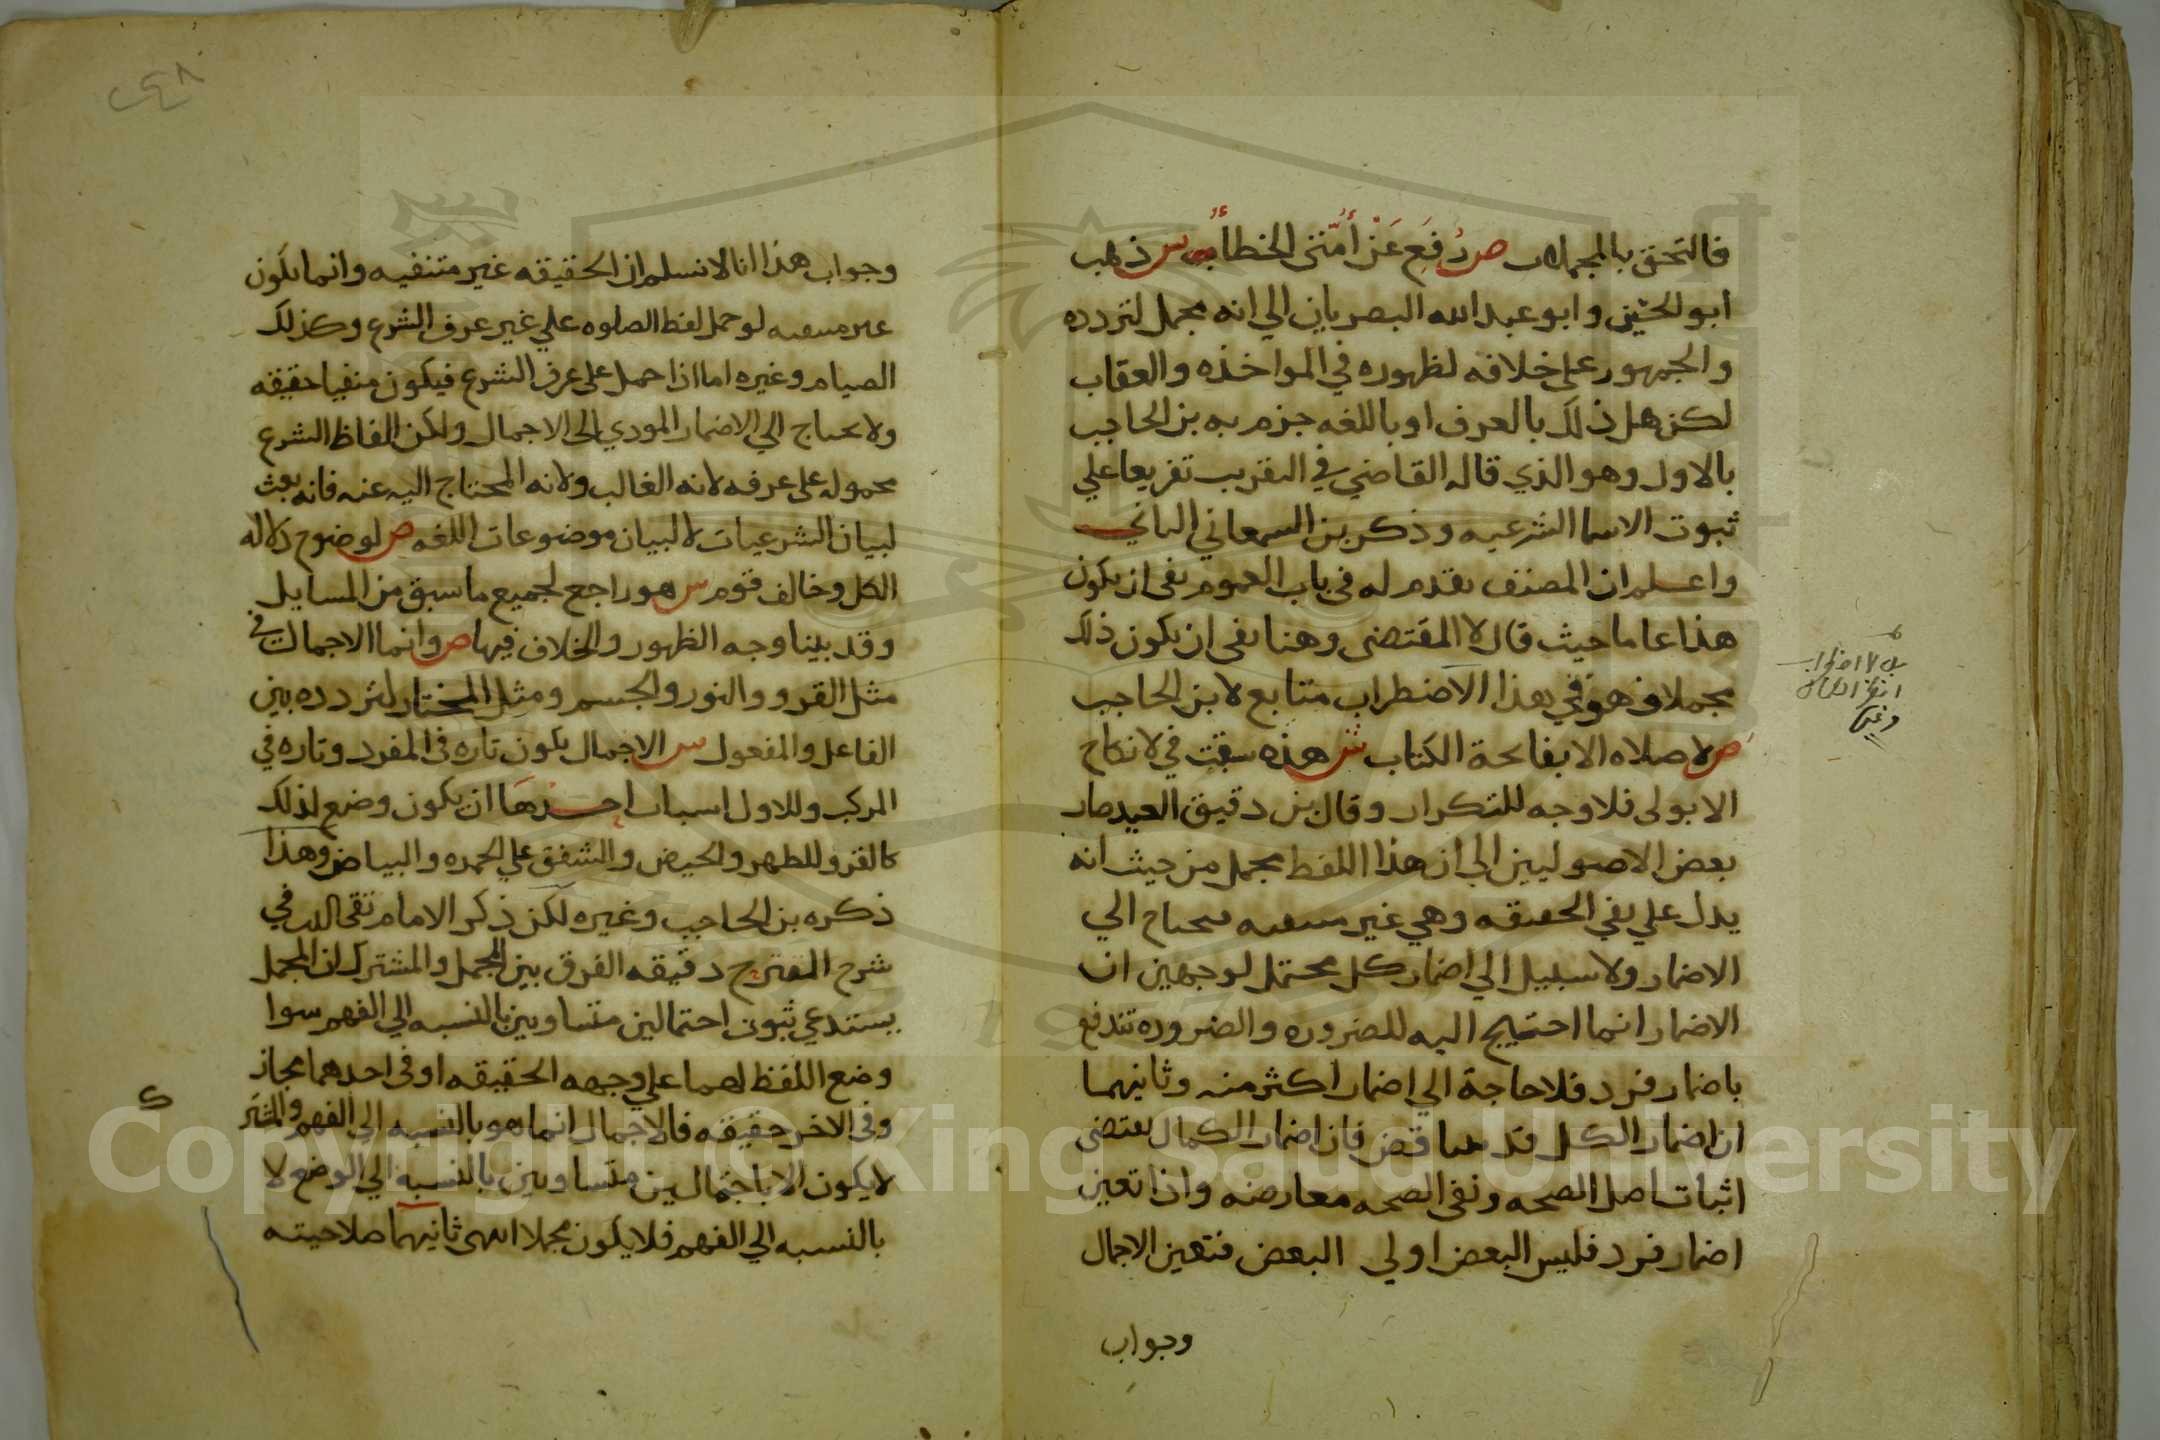 فالتحق بالمجملات ص رُفِعَ عَنْ أُمَّتي الخطأ س ذهب
ابو الحسين وابو عبد الله البصريان الي انه مجمل لتردده
والجمهور على خلافه لظهوره في المواخذه والعقاب
لكن هل ذلك بالعرف او باللغه جزم به بن الحاجب
بالاول وهو الذي قاله القاضي في التقريب تفريعا علي
ثبوت الاسما الشرعيه وذكر بن السمعاني الثاني
واعلم ان المصنف تقدم له في باب العموم نفى ان يكون
هذا عاما حيث قال لا المقتضى وهنا نفى ان يكون ذلك
مجملا وهو في هذا الاضطراب متابع لابن الحاجب
ص لا صلاه الا بفاتحة الكتاب ش هذه سبقت في لا نكاح
الا بولى فلا وجه للتكرار وقال بن دقيق العيد صار
بعض الاصوليين الي ان هذا اللفظ مجمل من حيث انه
يدل علي نفي الحقيقه وهي غير منتفيه فيحتاج الي
الاضمار ولا سبيل الي اضمار كل محتمل لوجهين ان
الاضمار انما احتيج اليه للضروره والضروره تندفع
باضمار فرد فلا حاجة الي اضمار اكثر منه وثانيهما
ان اضمار الكل قد يتناقض فان اضمار الكمال يقتضى
اثبات اصل الصحه ونفى الصحه معارضه واذا تعين
اضمار فرد فليس البعض اولي البعض فتعين الاجمال
وجواب
٢٤٨
وجواب هذا انا لا نسلم ان الحقيقه غير منتفيه وانما يكون
غير منتفيه لو حمل لفظ الصلوه علي غير عرف الشرع وكذلك
الصيام وغيره اما اذا حمل على عرف الشرع فيكون منفيا حقيقه
ولا يحتاج الي الاضمار المودي الى الاجمال ولكن الفاظ الشرع
محموله على عرفه لانه الغالب ولانه المحتاج اليه عنه فانه بعث
لبيان الشرعيات لا لبيان موضوعات اللغه ص لوضوح دلاله
الكل وخالف قوم س هو راجع لجميع ما سبق من المسايل
وقد بينا وجه الظهور والخلاف فيها ص وانما الاجمال في
مثل القرو والنور والجسم ومثل المختار لتردده بين
الفاعل والمفعول س الاجمال يكون تاره في المفرد وتاره في
المركب وللاول اسباب احدها ان يكون وضع لذلك
كالقرو للطهر والحيض والشفق علي الحمره والبياض وهذا
ذكره بن الحاجب وغيره لكن ذكر الامام تقى الدين في
شرح المقترح دقيقه الفرق بين المجمل والمشترك ان المجمل
يستدعي ثبوت احتمالين متساويين بالنسبه الي الفهم سوا
وضع اللفظ لهما علي وجهه الحقيقه او في احدهما مجاز
وفي الاخر حقيقه فالاجمال انما هو بالنسبه الى الفهم والمشترك
لا يكون الا باحتمالين متساويين بالنسبه الي الوضع لا
بالنسبه الي الفهم فلا يكون مجملا انتهى ثانيهما صلاحيته
Copy Right © King Saud University